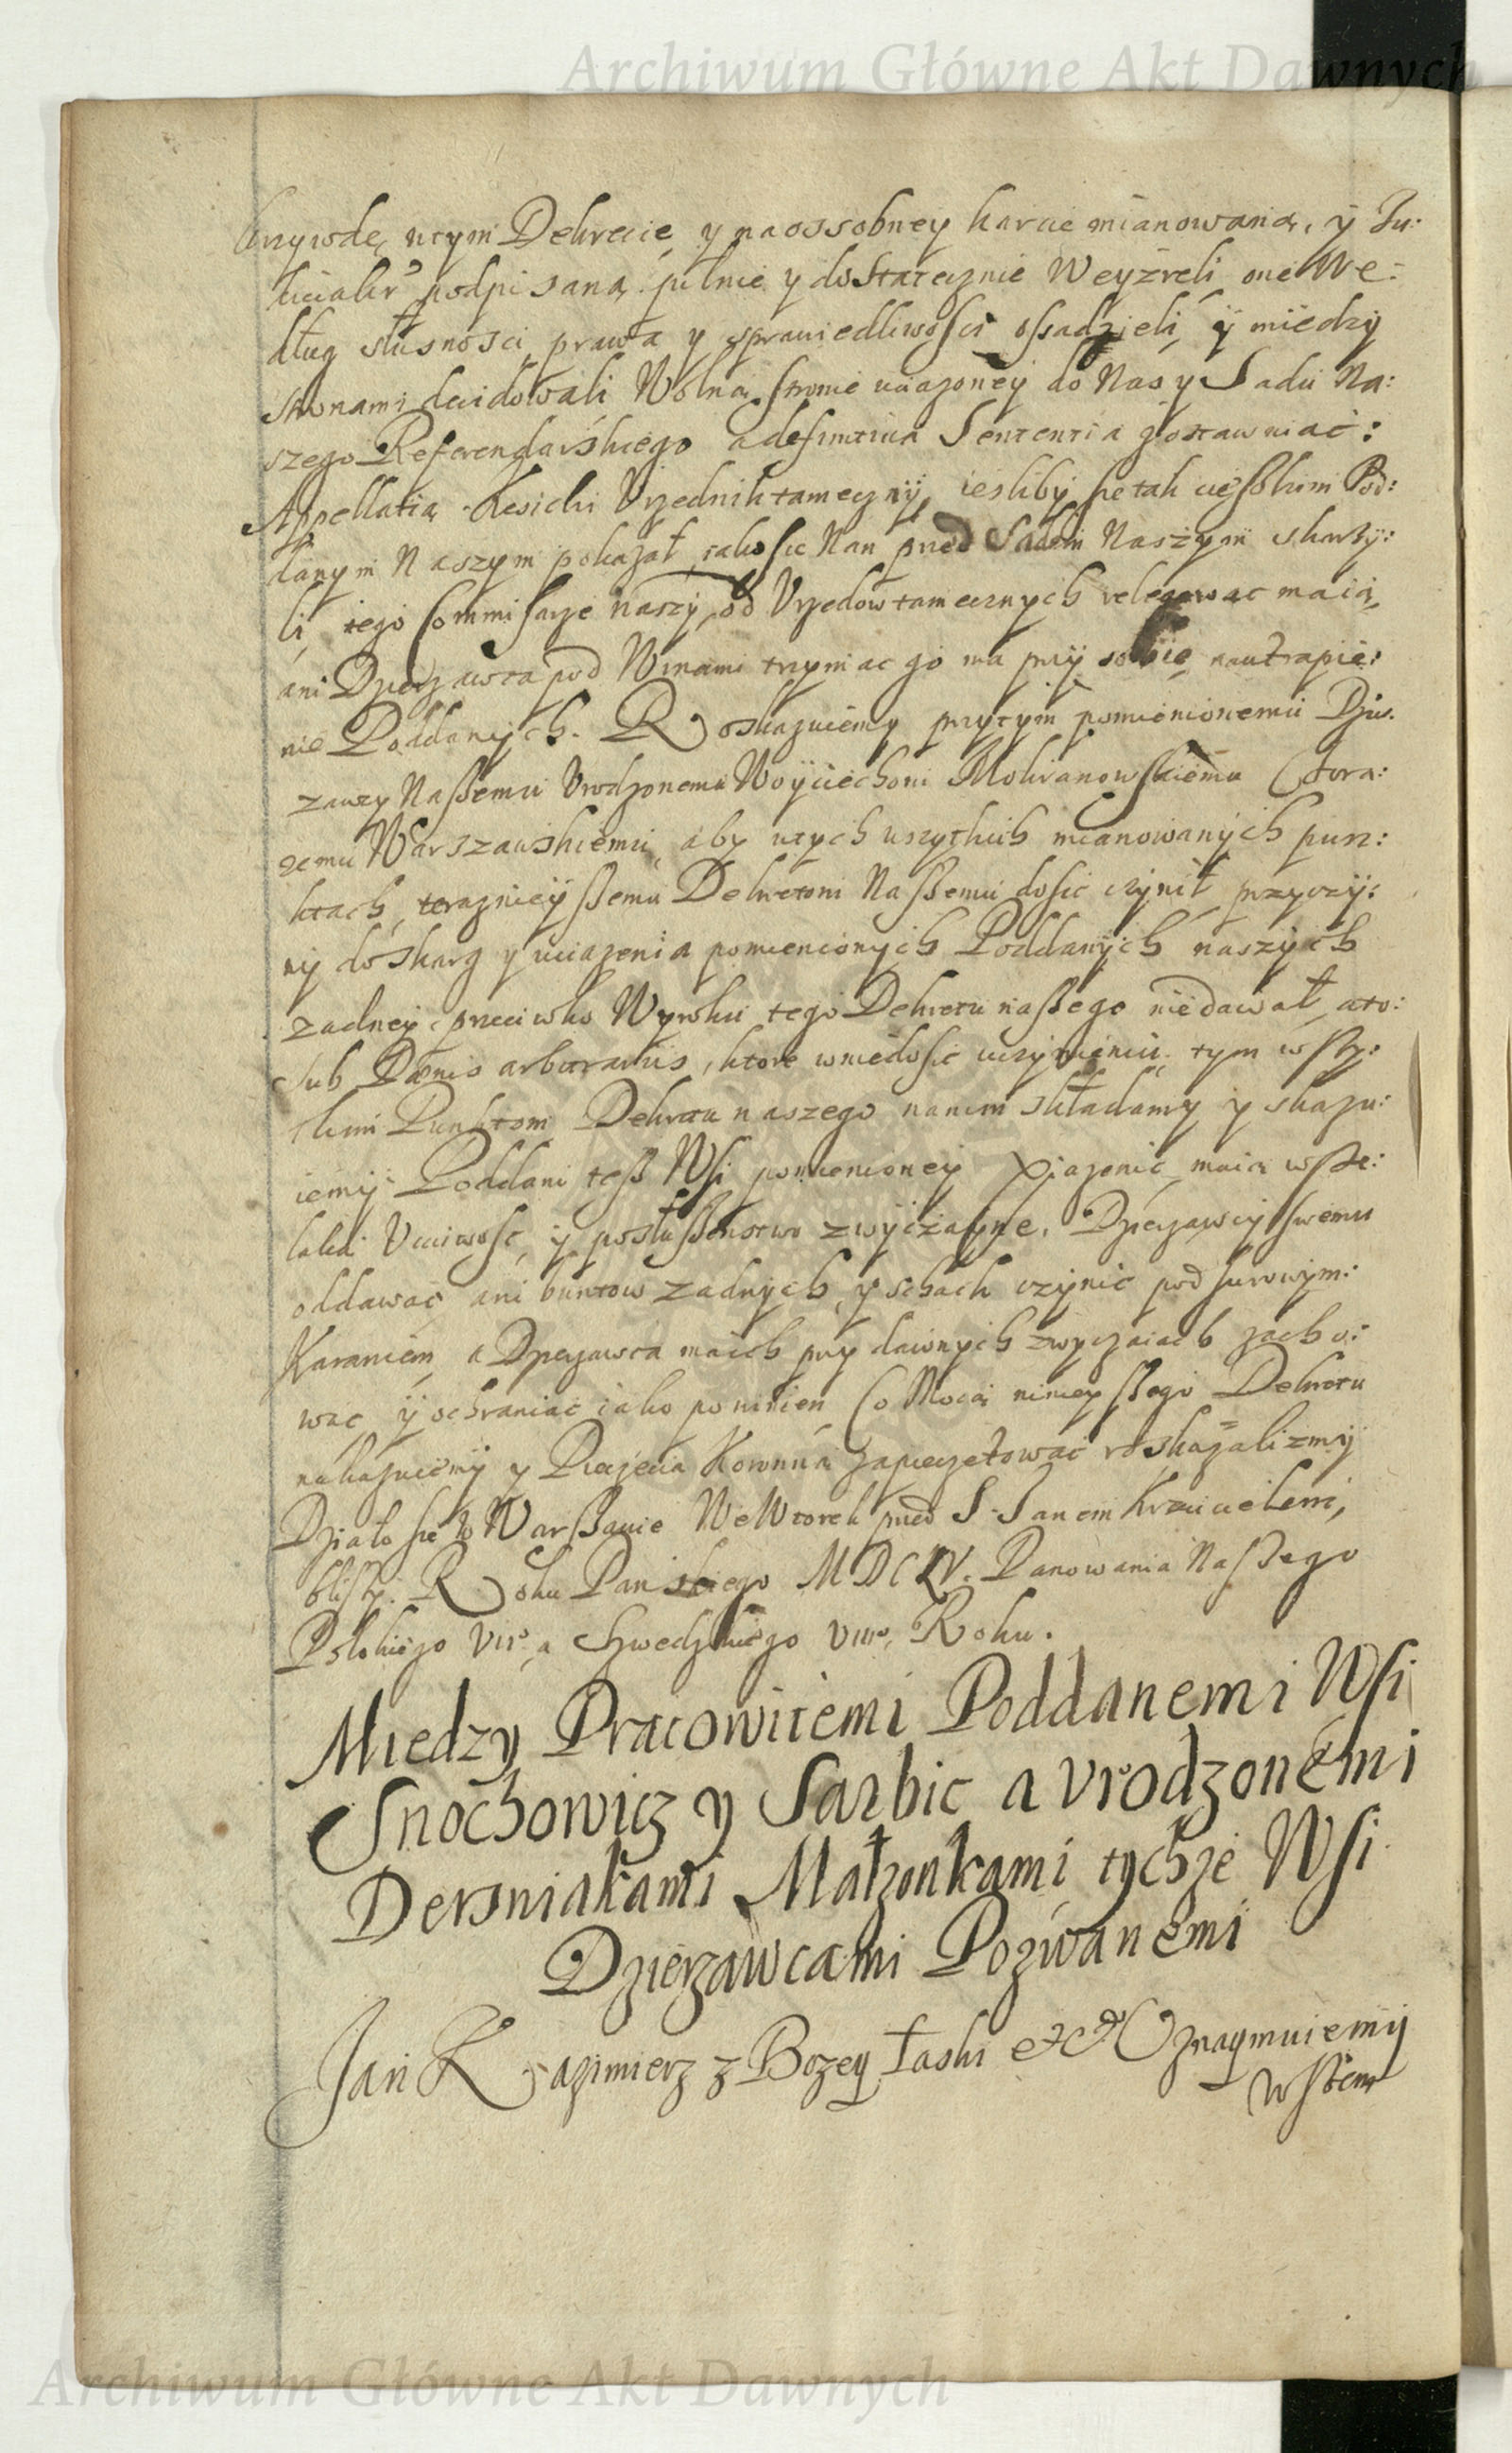 Archiwum Główne Akt Dawnych
krzywdę, wtym Dekrecie, y na ossobney karcie mianowaną, y Iu:
dicialr podpisaną pilnie y dostatecznie Weyźreli one We:
dług słusności, prawa y sprawiedliwości ossadzieli, y miedzy
stronami decidowali Wolną stronie uciązoney do Nas y Sadu Na:
szego Referendarskiego a definitiua Sententia zostawuiać:
Appellatią. Kesicki Vrzednik tameczny, iesliby sie tak cięszkim Pod:
danym Naszym pokazał, iako sie Nan przed Sadem Naszym skarży:
li, tego Commisarze naszy, od Vrzedow tamecznych relegowac maią,
ani Dzierzawca pod Winami trzymac go ma przy sobie, na utrapie:
nie Poddanych. Roskazuiemy przytym pomienionemu Dzier.
zawcy Naszemu Vrodzonemu Woyciechowi Mokranowskiemu Chora:
zemu Warszawskiemu, aby wtych wszytkich mianowanych punk:
ktach, teraznieyszemu Dekretowi Naszemu dosic czynił, przyczy:
ny do skarg y uciązenia pomienionych Poddanych naszych
zadney, przeciwko Wyroku tego Dekretu naszego nie dawał, a to:
sub Paenis arbitrariis, ktore w niedosic uczynieniu, tym wszy:
tkim Punktom Dekretu naszego nanim składamy y skazu:
iemy. Poddani tesz Wsi pomienioney Xiązenic maią wsze:
laką Vczciwość, y posłuszenstwo zwyczayne, Dzierzawcy swemu
oddawać, ani buntow zadnych, y schack czynić pod surowym:
Karaniem, a Dzierzawca maich przy dawnych zwyczaiach zacho:
wac, y ochraniać iako powinien. Co Mocą ninieyszego Dekretu
nakazuiemy y Pieczęcią Koronną zapieczętować roskazalizmy
Działo sie w Warszawie We Wtorek przed S. Janem Krzcicielem,
bliszy. Roku Panskiego MDCLV. Panowania Naszego
Polskiego VIIo, a Szwedzkiego VIIIo, Roku.
Miedzy Pracowitemi Poddanemi Wsi
Snochowicz y Sarbic a Vrodzonemi
Dersniakami Małzonkami tychze Wsi
Dzierzawcami Pozwanemi
Jan Kazimierz z Bozey Łaski etc Oznaymuiemy
Wszem
Archiwum Główne Akt Dawnych